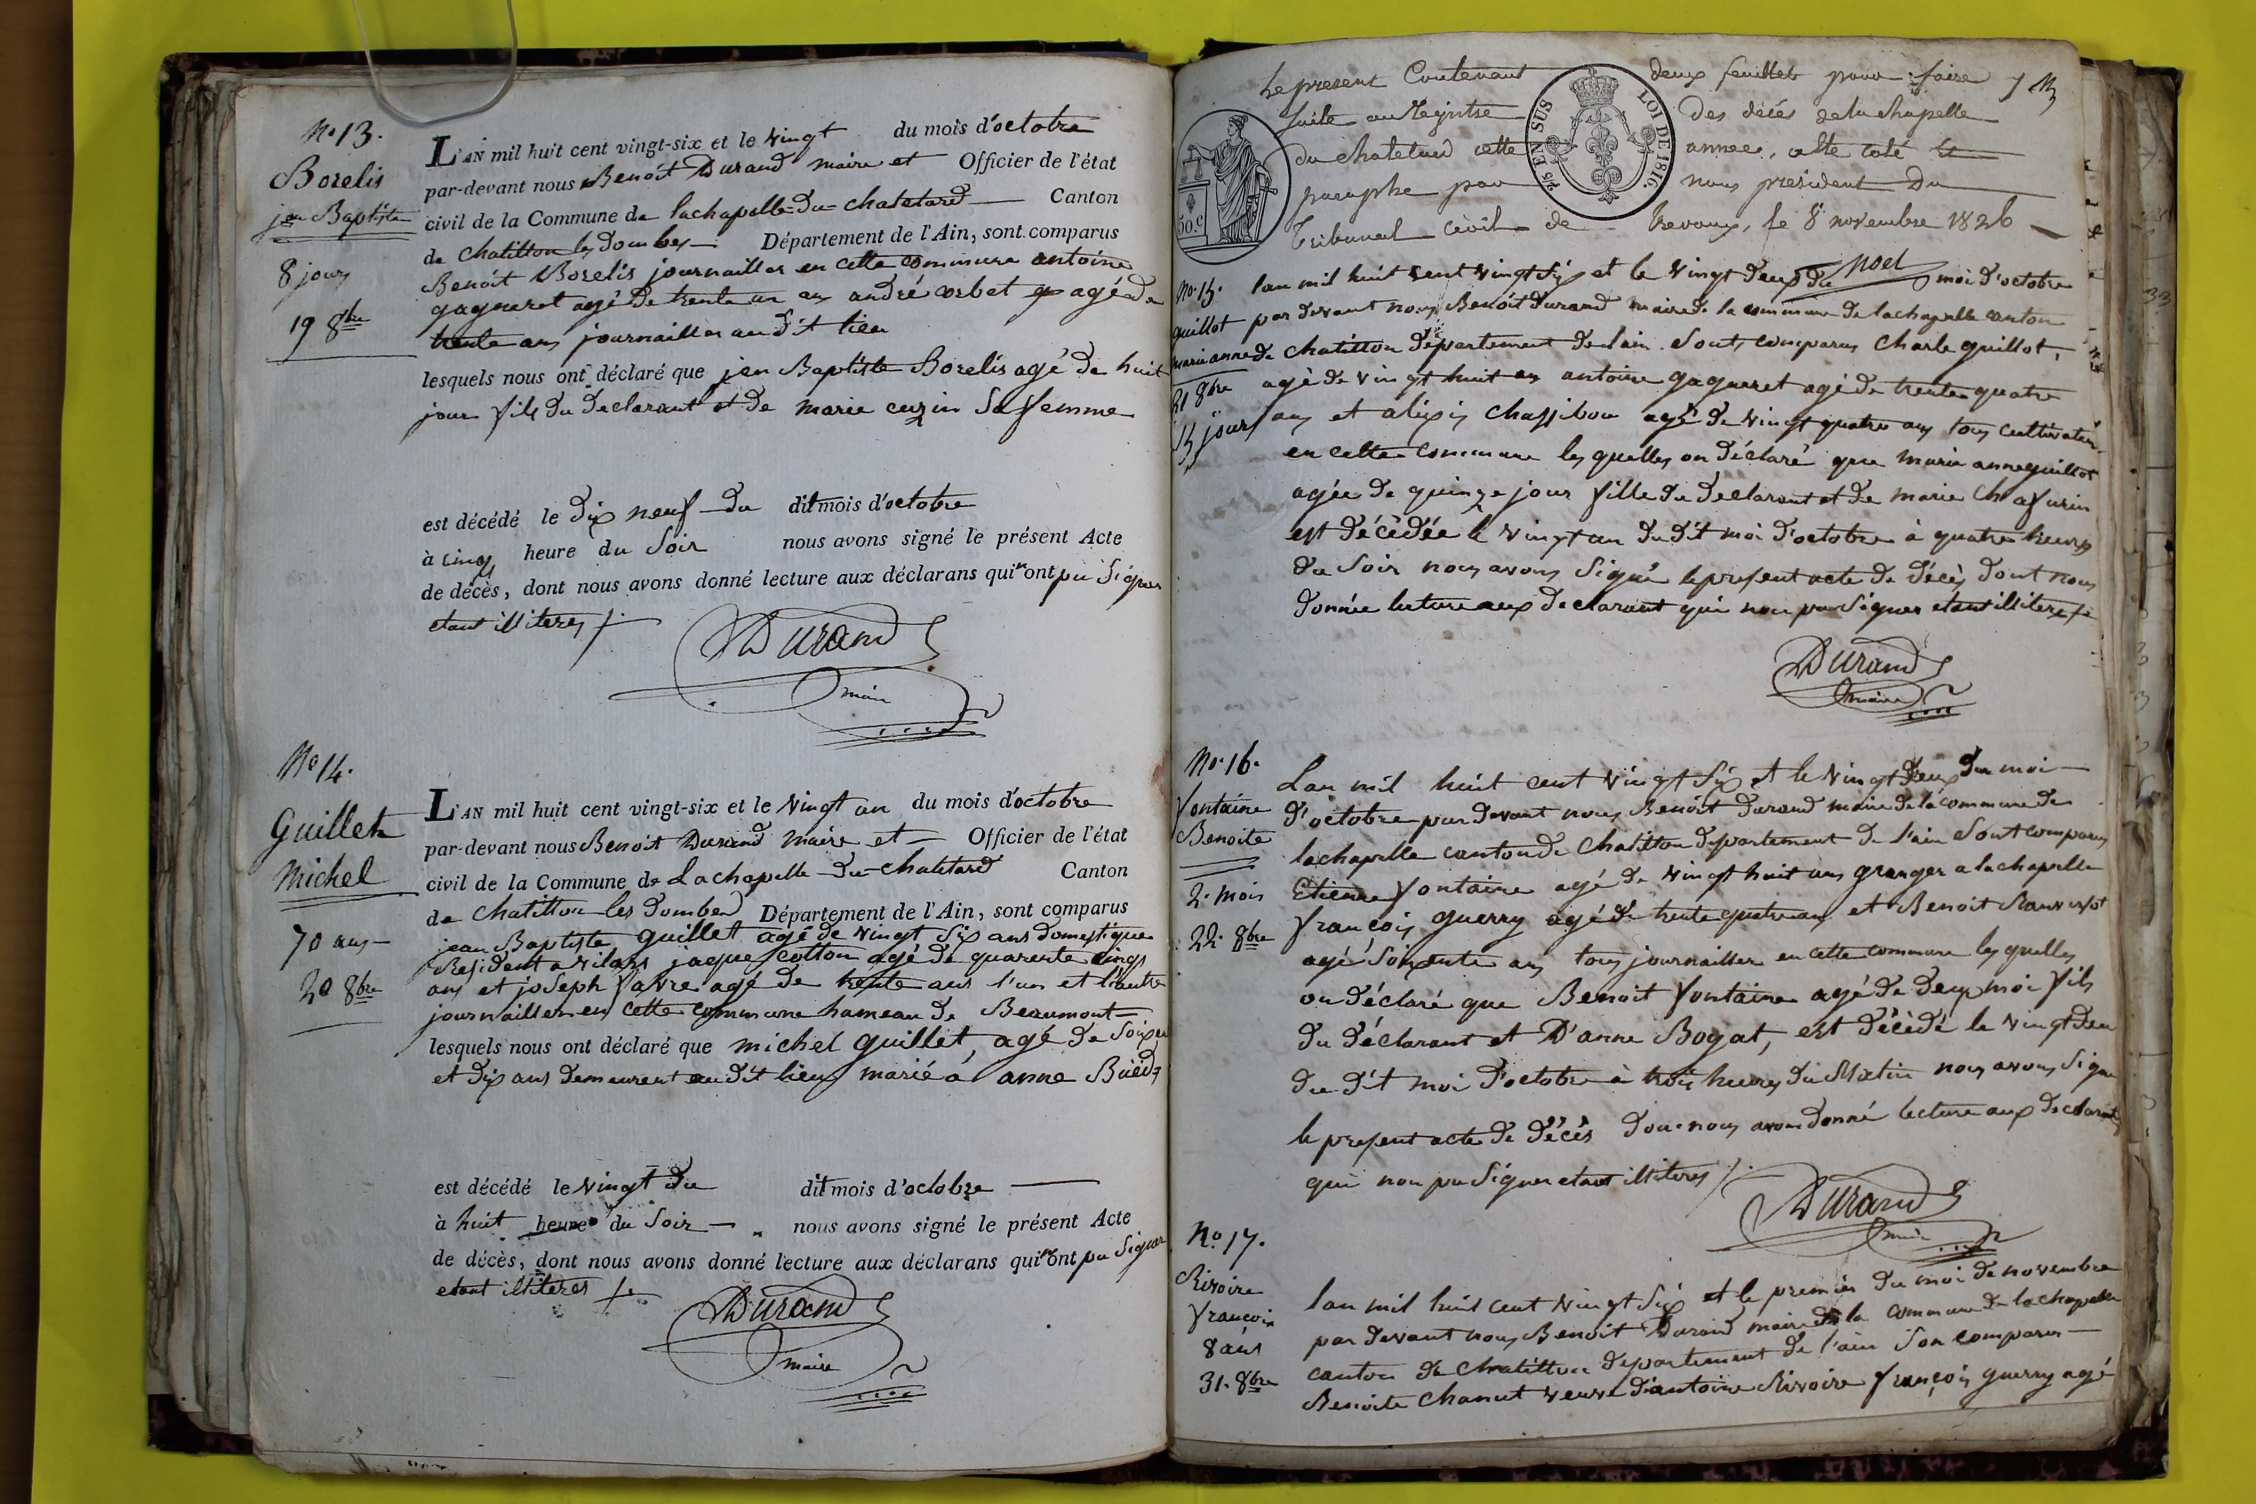 No 13.
Borelis
jen Baptiste
8 jours
19 8bre
L'AN mil huit cent vingt-six et le vingt du mois d'octobre
par-devant nous Benoit Durand maire et Officier de l'état
civil de la Commune de lachapelle-du-chatelard Canton
de chatillon les dombes Département de l'Ain, sont comparus
Benoit Borelis journailler en cette commune antoine
gagneret agé de trente un ans andré orbet agé de
trente ans journailler au dit lieu
lesquels nous ont déclaré que jen Baptiste Borelis agé de huit
jour fils du declarant et de marie cuzin Sa femme
est décédé le dix neuf du dit mois d'octobre
à cinq heure du Soir nous avons signé le présent Acte
de décès, dont nous avons donné lecture aux déclarans qui n'ont pu Signer
etant illiteres
Durand
maire
No 14.
Guillet
Michel
70 ans
20 8bre
L'AN mil huit cent vingt-six et le vingt un du mois d'octobre
par-devant nous Benoit Durand Maire et Officier de l'état
civil de la Commune de Lachapelle-du-chatelard Canton
de chatillon les Dombes Département de l'Ain, sont comparus
jean Baptiste Guillet agé de vingt Six ans domestique
Resident a vilars jaque cotton agé de quarente cinq
ans et joseph favre agé de trente ans l'un et l'autre
journailler en cette commune hameau de Beaumont
lesquels nous ont déclaré que michel guillet, agé de Soixen
et dix ans demeurent au dit lieu marié à anne
est décédé le vingt du dit mois d'octobre
à huit heure du Soir nous avons signé le présent Acte
de décès, dont nous avons donné lecture aux déclarans qui n'ont pu Signer
etant illiteres
Durand
maire
Le present Contenant deux feuillets pour faire
suite au Registre des décés de la chapelle
du chatelard cette annee, a été coté et
paraphe par nous president du
Tribunal civil de Trevoux, le 8 novembre 1826
noel
50.c
EN SUS
LOI DE 1816.
No 15.
guillot
marieanne
21 8bre
15 jours
lan mil huit cent vingt Six et le vingt deux du moi d'octobre
par devant nous Benoit Durand maire de la commune de lachapelle canton
de chatillon département de lain Sont comparus Charle guillot,
agé de vingt huit ans antoine gagneret agé de trente quatre
ans et alixis Chassibou agé de vingt quatre ans tous cultivateur
en cette commune les quelles on déclaré que marie anne guillot
agée de quinze jour fille du declarant et de marie Chafurin
est décèdée le vingt un du dit moi d'octobre à quatre heures
du Soir nous avons Signé le present acte de décès dont nous
donnée lecture aux declarant qui non pu Signer étant illiteres
Durand
maire
No 16.
fontaine
Benoite
2. mois
22. 8bre
Lan mil huit cent vingt Six et le vingt deux du moi
d'octobre par devant nous Benoit Durand maire de la commune de
lachapelle canton de Chatillon departement de l'ain Sont comparus
Etienne fontaine agé de vingt huit ans granger a lachapelle
françois guerry agé de trente quatre ans et Benoit
agé Soixente ans tous journailler en cette commune les quelles
on déclaré que Benoit fontaine agé de deux moi fils
du déclarant et D'anne Bogat, est décèdé le vingt deu
du dit moi d'octobre à trois heures du Matin nous avons Signé
le present acte de décès dont nous avons donné lecture aux declarant
qui non pu Signer etant illiteres
Durand
maire
No. 17.
Rivoire
françois
8 ans
31. 8bre
lan mil huit cent vingt Six et le premier du moi de novembre
par devant nous Benoit Durand maire de la commune de lachapelle
canton de Chatillon departement de l'ain Son comparus
Benoite Chanut veuve d'antoine Rivoire françois guerry agé